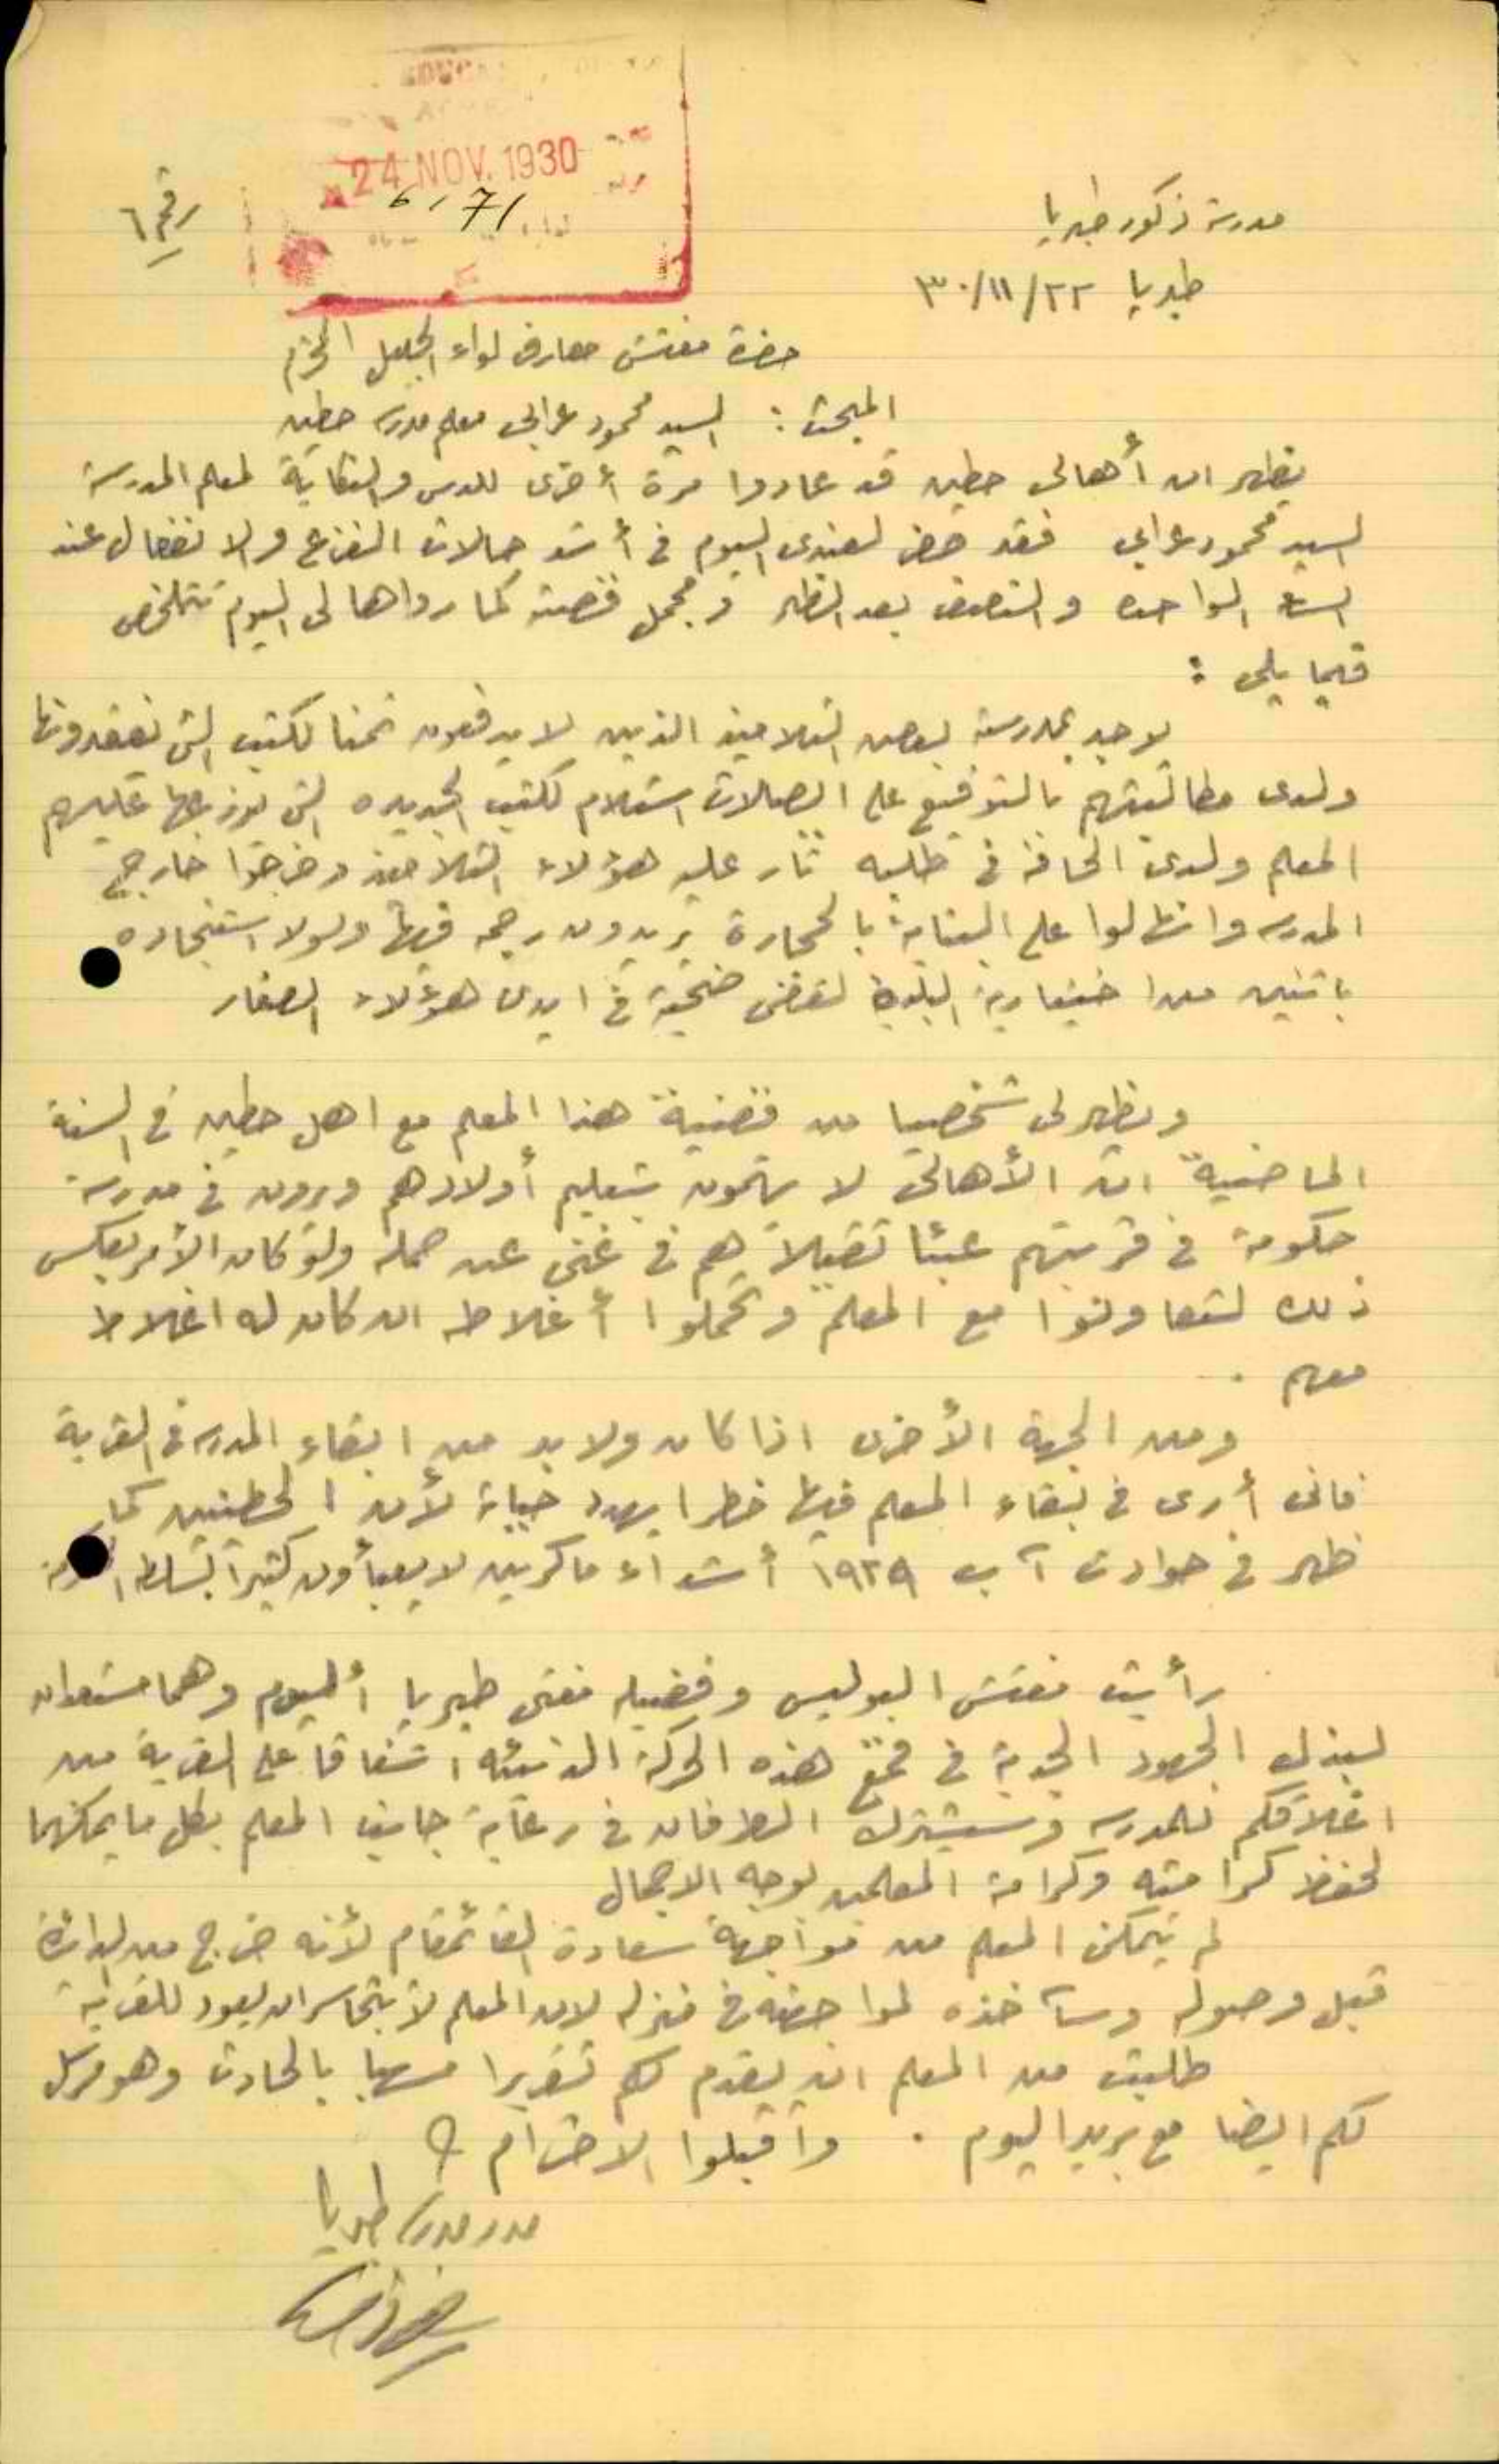 24 NOV. 1930
6/71
رقم ٦
مدرسة ذكور طبريا
طبريا ٢٢/١١/٣٠
حضرة مفتش معارف لواء الجليل المحترم
المبحث : السيد محمود عرابي معلم مدرسة حطين
يظهر ان أهالي حطين قد عادوا مرة أخرى للدس والنكاية لمعلم المدرسة
السيد محمود عرابي فقد حضر لعندي اليوم في أشد حالات الفزع والانفعال عند
الساعة الواحدة والنصف بعد الظهر ومجمل قصته كما رواها لي اليوم تتلخص
فيما يلي :
يوجد بمدرسته بعض التلاميذ الذين لا يدفعون ثمنا لكتب التي يفقدونها
ولدى مطالبتهم بالتوقيع على ايصالات استلام الكتب الجديده التي يوزعها عليهم
المعلم ولدى الحافه في طلبه ثار عليه هؤلاء التلاميذ وخرجوا خارج
المدرسة وانهالوا على البناية بالحجارة يريدون رجمه فيها ولولا استنجاده
باثنين من اختيارية البلدة لقضى ضحية في ايدي هؤلاء الصغار
ويظهر لي شخصيا من قضية هذا المعلم مع اهل حطين في السنة
الماضية ان الأهالي لا يهتمون بتعليم أولادهم ويرون في مدرسة
حكومة في قريتهم عبئا ثقيلاً هم في غنى عن حمله ولو كان الأمر بعكس
ذلك لتعاونوا مع المعلم وتحملوا أغلاطه ان كان له اغلاط
معهم .
ومن الجهة الأخرى اذا كان ولا بد من ابقاء المدرسة في القرية
فاني أرى في بقاء المعلم فيها خطرا يهدد حياته لأن الحطينيين كما
ظهر في حوادث آب ١٩٢٩ أشداء ماكرين لا يعبأون كثيراً بسلطة
رأيت مفتش البوليس وفضيلة مفتي طبريا اليوم وهما مستعدان
لبذل الجهود الجدية في قمع هذه الحركة الدنيئه اشفاقا على القرية من
اغلاقكم للمدرسة وسيشترك الطرفان في رعاية جانب المعلم بكل ما يمكنهما
لحفظ كرامته وكرامة المعلمين بوجه الاجمال
لم يتمكن المعلم من مواجهة سعادة القائمقام لأنه خرج من الدائرة
قبل وصوله وسآخذه لمواجهته في منزله لان المعلم لا يتجاسر ان يعود للقرية
طلبت من المعلم ان يقدم لكم تقريرا مسهبا بالحادث وهو مرسل
لكم ايضا مع بريد اليوم . واقبلوا الاحترام
مدير مدرسة طبريا